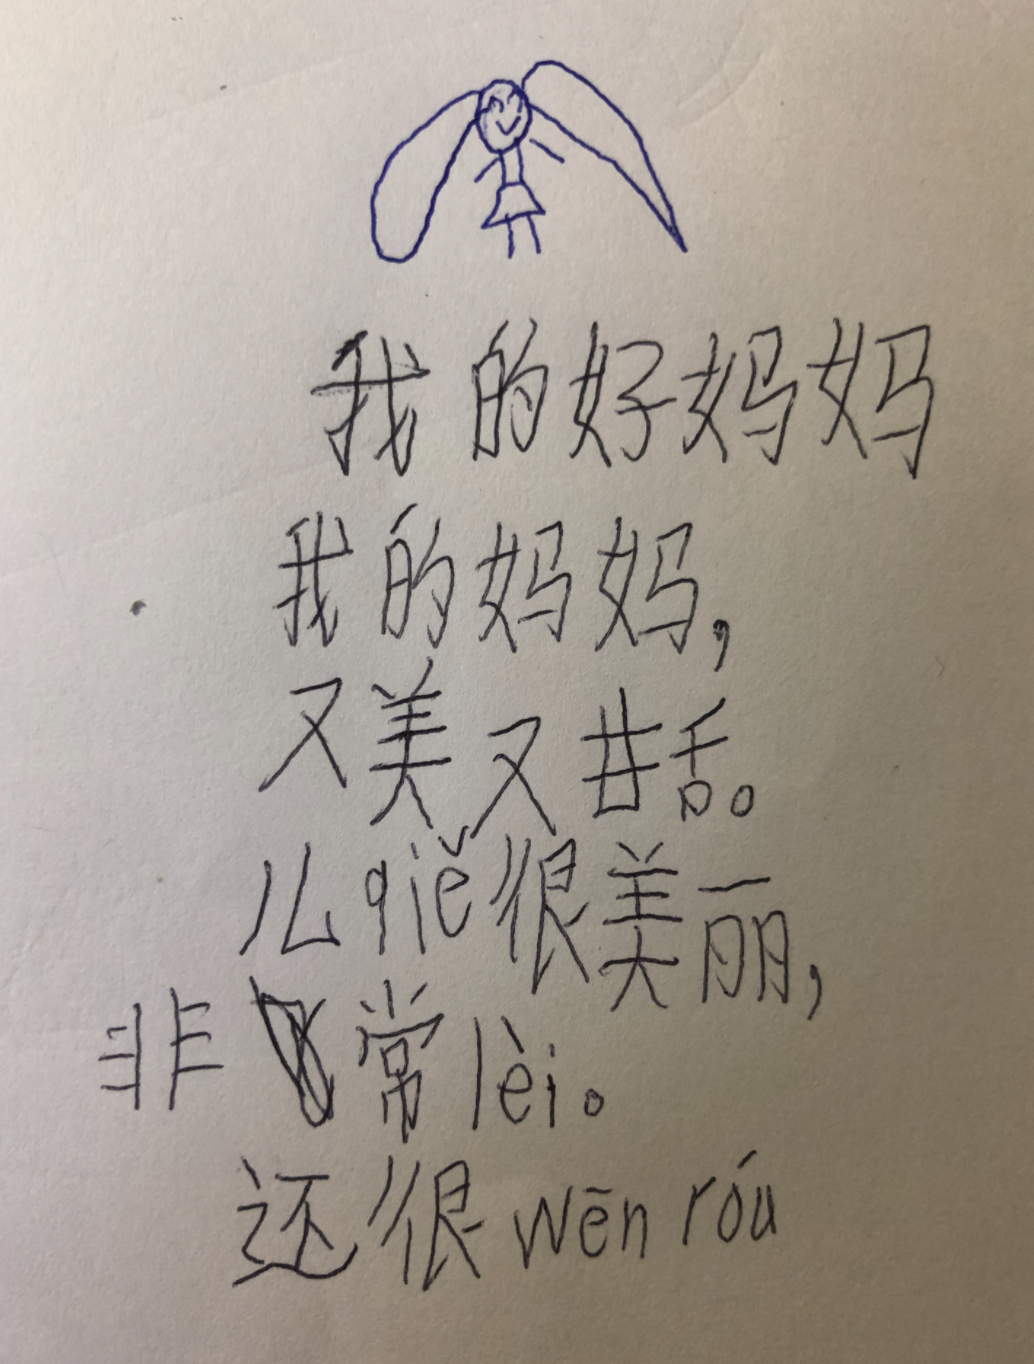 我的好妈妈
我的妈妈,
又美又甘舌。
儿么qiě很美丽,
非常lèi。
还很wēn róu